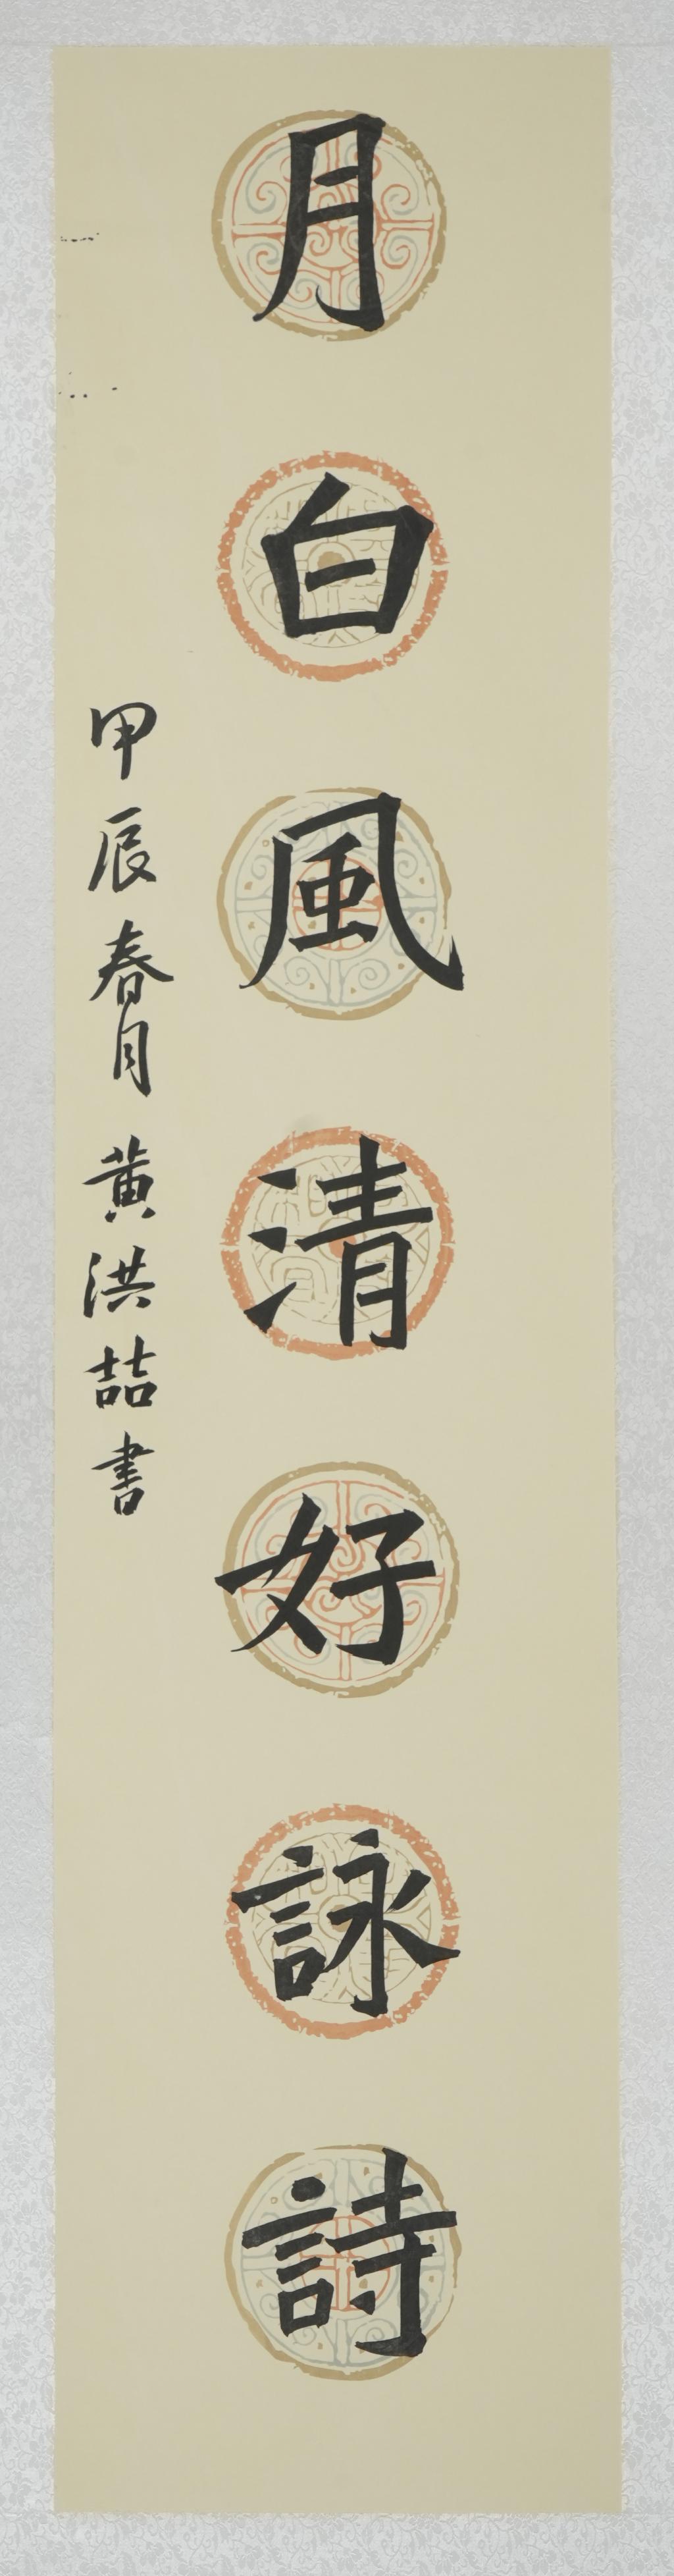 月白風清好詠詩
甲辰春月黃洪喆書